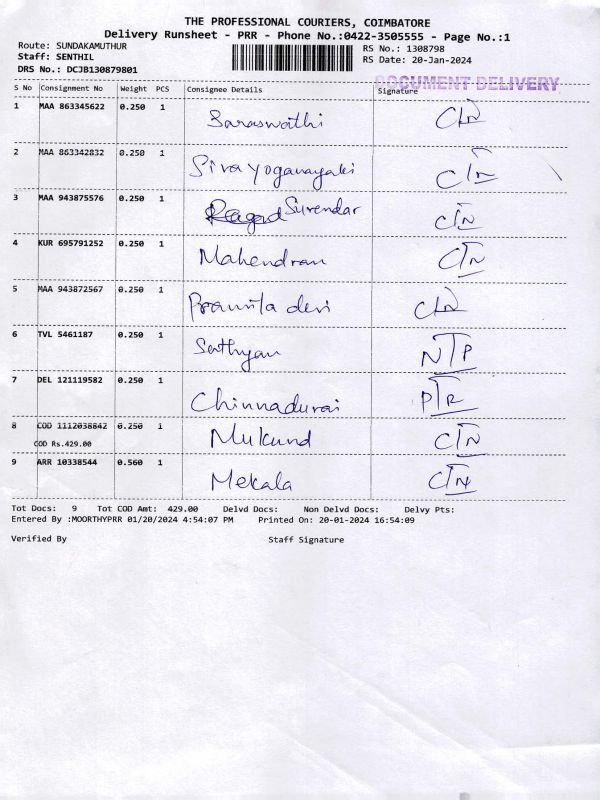 THE PROFESSIONAL COURIERS, COIMBATORE
Delivery Runsheet - PRR - Phone No.:0422-3505555 - Page No.:1
Route: SUNDAKAMUTHUR
Staff: SENTHIL
DRS No.: DCJB130879801
RS No.: 1308798
RS Date: 20-Jan-2024
DOCUMENT DELIVERY
S No Consignment No Weight PCS Consignee Details Signature
1 MAA 863345622 0.250 1 Saraswathi
2 MAA 863342832 0.250 1 Sivayoganayaki
3 MAA 943875576 0.250 1 Surendar
4 KUR 695791252 0.250 1 Mahendran
5 MAA 943872567 0.250 1 Pramila devi
6 TVL 5461187 0.250 1 Sathyan NTP
7 DEL 121119582 0.250 1 Chinnadurai PTR
8 COD 1112038842 0.250 1 Mukund CTN
COD Rs.429.00
9 ARR 10338544 0.560 1 Mekala CTN
Tot Docs: 9 Tot COD Amt: 429.00 Delvd Docs: Non Delvd Docs: Delvy Pts:
Entered By :MOORTHYPRR 01/20/2024 4:54:07 PM Printed On: 20-01-2024 16:54:09
Verified By Staff Signature